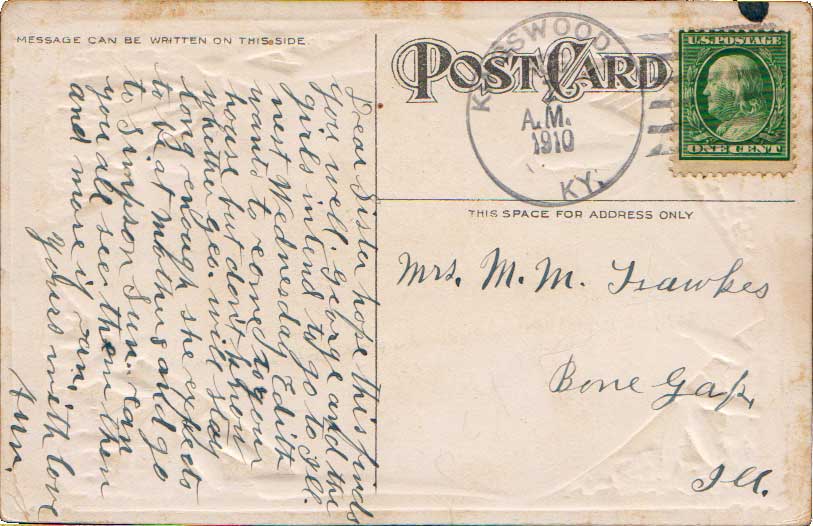 MESSAGE CAN BE WRITTEN ON THIS SIDE
POST CARD
KINGSWOOD
A.M.
1910
KY.
U.S. POSTAGE
ONE CENT
THIS SPACE FOR ADDRESS ONLY
Dear Sister hope this finds
you well. george and the
girls intend to go to Ill.
next Wednesday Edith
wants to come to your
house but don't know
whether geo. will stay
long enough she expects
to be at Mothers and go
to Simpson Sun. can
you all see them then
and more if can,
yours with love
Ann.
Mrs. M. M. Frawkes
Bone Gap,
Ill.